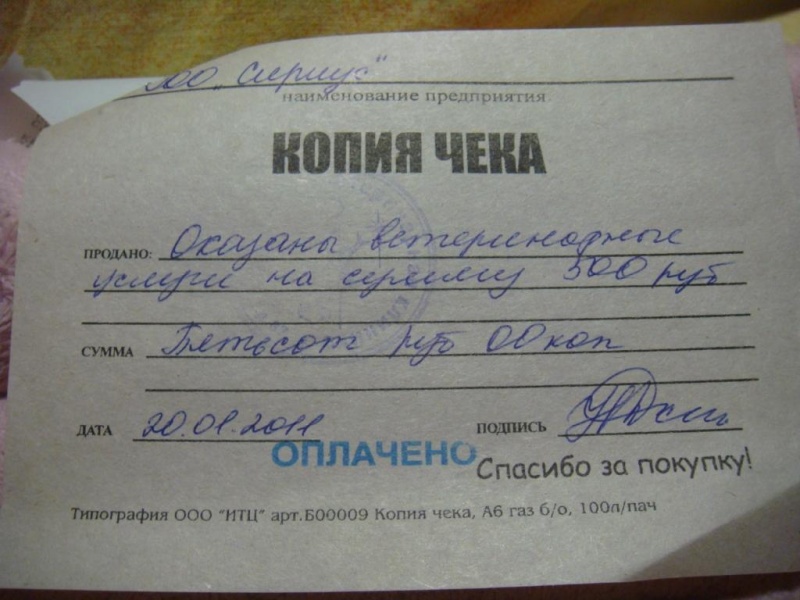 ООО „Сириус"
наименование предприятия
КОПИЯ ЧЕКА
ПРОДАНО: Оказаны ветеринарные
услуги на сумму 500 руб
СУММА Пятьсот руб 00 коп
ДАТА 20.01.2011 ПОДПИСЬ
ОПЛАЧЕНО
Спасибо за покупку!
Типография ООО "ИТЦ" арт.Б00009 Копия чека, А6 газ б/о, 100л/пач